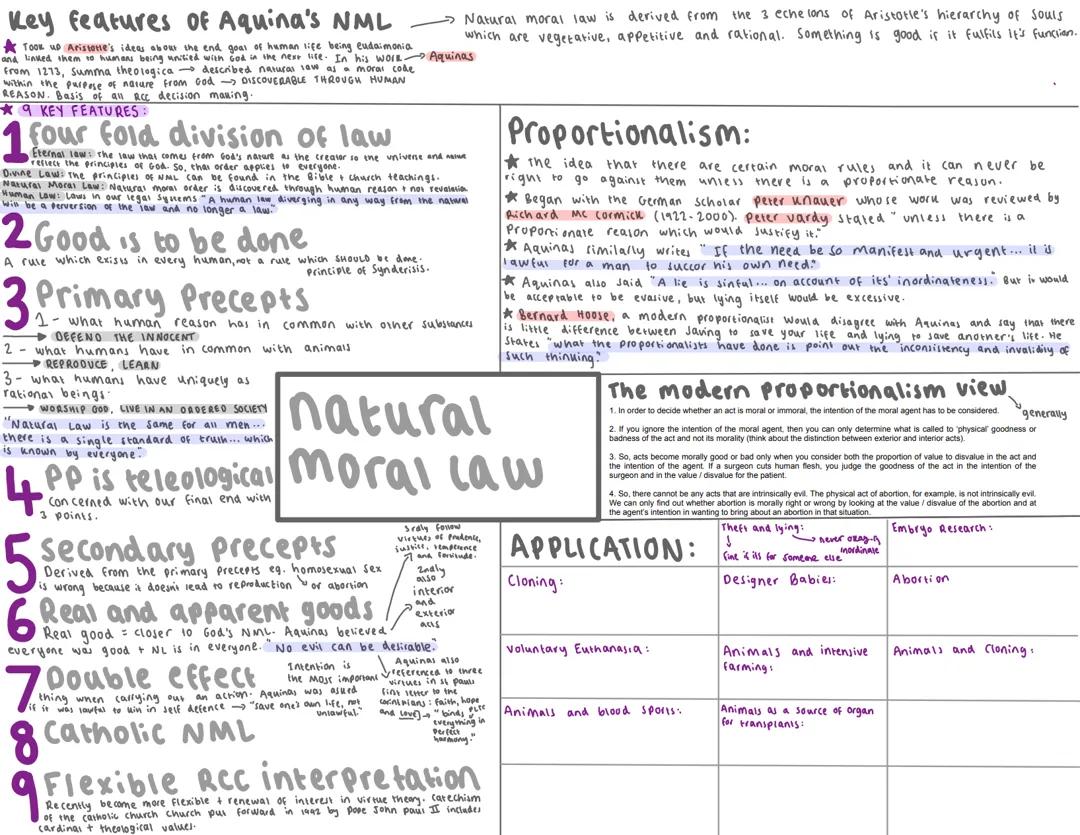 Key features of Aquina's NML
Natural moral law is derived from the 3 echelons of Aristotle's hierarchy of souls
which are vegetative, appetitive and rational. Something is good if it fulfils it's function.
★ Took up Aristotle's ideas about the end goal of human life being eudaimonia
and linked them to humans being unified with God in the next life. In his work → Aquinas
from 1273, Summa theologica → described natural law as a moral code
within the purpose of nature from God → DISCOVERABLE THROUGH HUMAN
REASON. Basis of all RCC decision making.
★ 9 KEY FEATURES:
1 four fold division of law
Eternal law: The law that comes from God's nature as the creator so the universe and nature
reflect the principles of God. So, that order applies to everyone.
Divine Law: The principles of NML can be found in the Bible + church teachings.
Natural Moral Law: Natural moral order is discovered through human reason + not revelation
Human Law: Laws in our legal systems "A human law diverging in any way from the natural
will be a perversion of the law and no longer a law."
2 Good is to be done
A rule which exists in every human, not a rule which SHOULD be done.
principle of Synderisis.
3 Primary Precepts
1 - what human reason has in common with other substances
→ DEFEND THE INNOCENT
2 - what humans have in common with animals
→ REPRODUCE, LEARN
3 - what humans have uniquely as
rational beings:
→ WORSHIP GOD, LIVE IN AN ORDERED SOCIETY
"Natural Law is the same for all men...
there is a single standard of truth... which
is known by everyone."
4 PP is teleological
concerned with our final end with
3 points.
5 Secondary precepts
Derived from the primary precepts eg. homosexual sex
is wrong because it doesn't lead to reproduction or abortion
6 Real and apparent goods
Real good = closer to God's NML. Aquinas believed
everyone was good + NL is in everyone. "No evil can be desirable."
3rdly follow
virtues of prudence,
justice, temperence
and fortitude.
2ndly
also
interior
and
exterior
acts
7 Double effect
Intention is
the most important
thing when carrying out an action. Aquinas was asked
if it was lawful to kill in self defence → "save one's own life, not
unlawful."
Aquinas also
referenced to three
virtues in st pauls
first letter to the
corinthians: faith, hope
and love → "binds
everything in
perfect
harmony."
8 Catholic NML
9 Flexible RCC interpretation
Recently become more flexible + renewal of interest in virtue theory. Catechism
of the catholic church church put forward in 1992 by Pope John Paul II includes
cardinal + theological values.
natural
moral law
Proportionalism:
★ The idea that there are certain moral rules and it can never be
right to go against them unless there is a proportionate reason.
★ Began with the German scholar Peter Knauer whose work was reviewed by
Richard Mc Cormick (1922-2000). Peter Vardy stated "unless there is a
Proportionate reason which would justify it."
★ Aquinas similarly writes "If the need be so manifest and urgent... it is
lawful for a man to succor his own need."
★ Aquinas also said "A lie is sinful... on account of its' inordinateness." But it would
be acceptable to be evasive, but lying itself would be excessive.
★ Bernard Hoose, a modern proportionalist would disagree with Aquinas and say that there
is little difference between saving to save your life and lying to save another's life. He
states "what the proportionalists have done is point out the inconsistency and invalidity of
such thinking."
The modern proportionalism view
generally
1. In order to decide whether an act is moral or immoral, the intention of the moral agent has to be considered.
2. If you ignore the intention of the moral agent, then you can only determine what is called to 'physical' goodness or
badness of the act and not its morality (think about the distinction between exterior and interior acts).
3. So, acts become morally good or bad only when you consider both the proportion of value to disvalue in the act and
the intention of the agent. If a surgeon cuts human flesh, you judge the goodness of the act in the intention of the
surgeon and in the value / disvalue for the patient.
4. So, there cannot be any acts that are intrinsically evil. The physical act of abortion, for example, is not intrinsically evil.
We can only find out whether abortion is morally right or wrong by looking at the value / disvalue of the abortion and at
the agent's intention in wanting to bring about an abortion in that situation.
APPLICATION:
Theft and lying:
→ never okay
inordinate
↓
fine is its for someone else
Embryo Research:
Cloning:
Designer Babies:
Abortion
Voluntary Euthanasia:
Animals and intensive
farming:
Animals and Cloning:
Animals and blood sports:
Animals as a source of organ
for transplants: